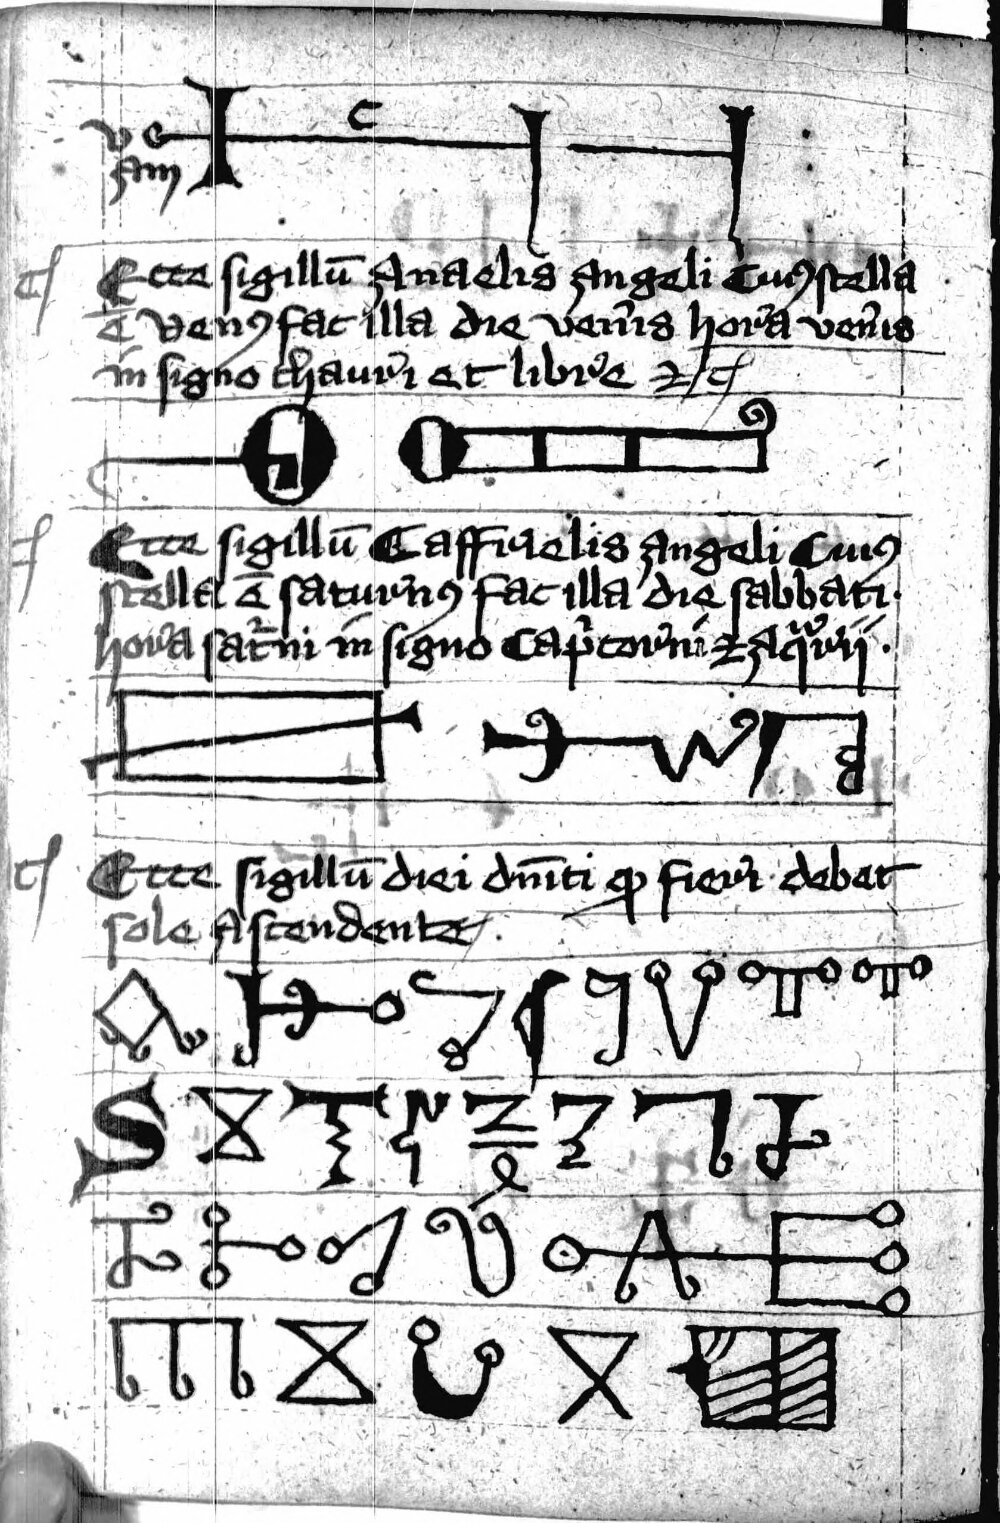 Ecce sigillū Anaelis angeli Cuiꝰ stella
ē Venꝰ fac illa die veneris hora veneris
in signo thauri et libre
Ecce sigillū Caffrielis angeli Cuiꝰ
stella ē saturnꝰ fac illa die sabbati.
hora sat̄ni in signo Capͥcorni ⁊ aqͣrii.
Ecce sigillū diei dn̄ici ꝙ fieri debet
sole Ascendente.